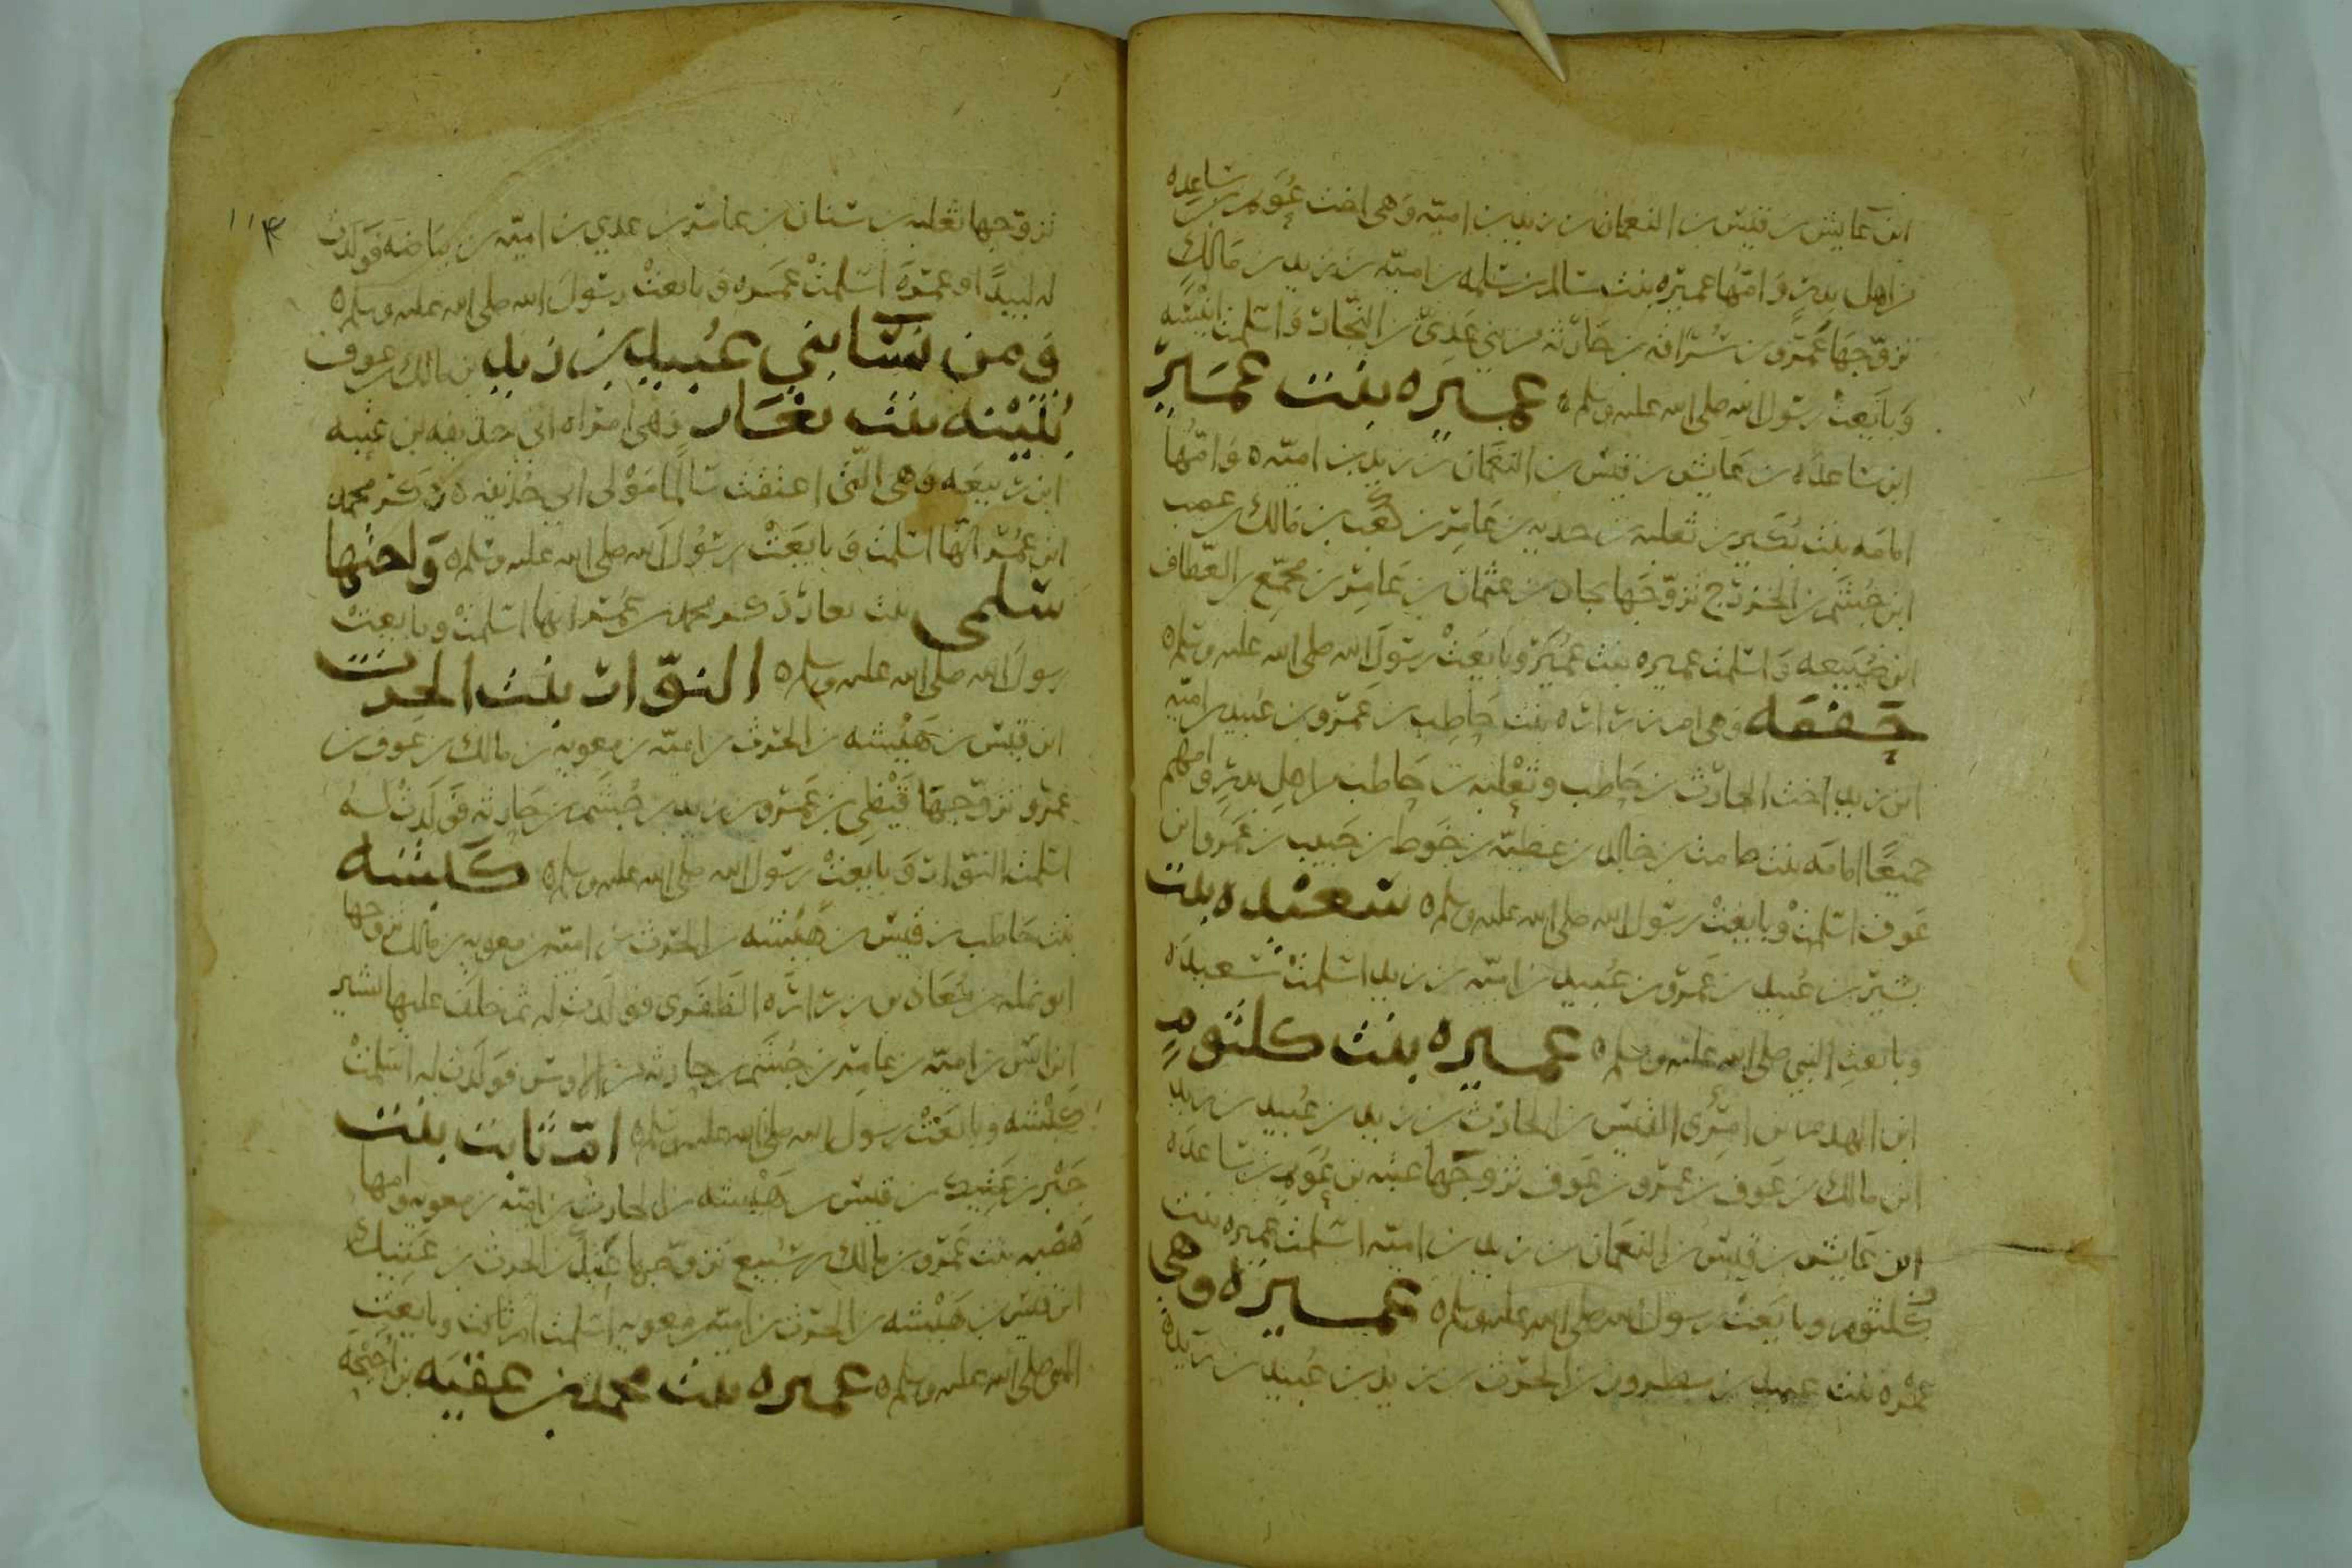 ابن عايش بن قيس بن النعمان بن زيد بن امية وهى اخت عويم بن ساعده
من اهل بدر وامّها عميره بنت سالم بن سلمه بن امية بن زيد بن مالك
تزوّجها عمرو بن سراقه بن حارثه من بني عدى بن النجار واسلمت انيسه
وبايعت رسول الله صلى الله عليه وسلم ه عميره بنت عمير
ابن ساعده بن عايش بن قيس بن النعمان بن زيد بن اميّه ه وامّها
امامه بنت بكير بن ثعلبه بن حدبه بن عامر بن كعب بن مالك بن غضب
ابن جشم بن الخزرج تزوّجها بجاد بن عثمان بن عامر بن مجمّع بن العطاف
ابن ضبيعه واسلمت عميره بنت عمير وبايعت رسول الله صلى الله عليه وسلم ه
وهى ام زراره بنت حاطب بن عمرو بن عبيد بن اميّه
ابن زيد اخت الحارث بن حاطب وثعلبه بن حاطب من اهل بدر وامهم
جميعًا امامه بنت صامت بن خالد بن عطيّه بن حوط بن حبيب بن عمرو ابن
عوف اسلمت وبايعت رسول الله صلى الله عليه وسلم ه بنت
بشير بن عبيد بن عمرو بن عبيد بن اميّه بن زيد اسلمت
وبايعت النبي صلى الله عليه وسلم ه عميره بنت كلثوم
ابن الهدم بن امرى القيس بن الحارث بن زيد بن عبيد بن زيد
ابن مالك بن عوف بن عمرو بن عوف تزوجها عتبه بن عويم بن ساعده
ابن عايش بن قيس بن النعمان بن زيد بن اميّه اسلمت عميره بنت
كلثوم وبايعت رسول الله صلى الله عليه وسلم ه عميره وهى
عمره بنت عبيد بن مطروف بن الحرث بن زيد بن عبيد بن زيد ه
١١٣
تزوّجها ثعلبه بن سنان بن عامر بن عدي بن اميّه بن بياضه فولدت
له لبيدًا وعمره اسلمت عميره وبايعت رسول الله صلى الله عليه وسلم ه
ومن نسا بني عبيد بن زيد بن مالك بن عوف
ثبيته بنت يعار وهى امراه ابي حذيفه بن عتبه
ابن ربيعه وهى التى اعتقت سالمًا مولى ابي حذيفه ه ذكر محمد
ابن عمر انّها اسلمت وبايعت رسول الله صلى الله عليه وسلم ه واختها
سلمى بنت يعار ذكر محمد بن عمر انها اسلمت وبايعت
رسول الله صلى الله عليه وسلم ه النوّار بنت الحرث
ابن قيس بن هيشه بن الحرث بن اميّه بن معويه بن مالك بن عوف بن
عمرو تزوّجها قيظي بن عمرو بن زيد بن جشم بن حارثه فولدت له
اسلمت النوّار وبايعت رسول الله صلى الله عليه وسلم ه كبشه
بنت حاطب بن قيس بن هيشه بن الحرث بن اميّه بن معويه بن مالك تزوجها
ابو نمله بن معاذ بن زراره الظفرى فولدت له ثم خلف عليها بشير
ابن انس بن اميّه بن عامر بن جشم بن حارثه من الاوس فولدت له اسلمت
كبشه وبايعت رسول الله صلى الله عليه وسلم ه امّ ثابت بنت
جبر بن عتيك بن قيس بن هيشه بن الحارث بن اميّه بن معويه وامها
هضبه بنت عمرو بن مالك بن سبيع تزوّجها بن الحرث بن عتيك
ابن قيس بن هيشه بن الحرث بن اميّه بن معويه اسلمت ام ثابت وبايعت
النبى صلى الله عليه وسلم ه عميره بنت محمد بن عقبه بن احيحه